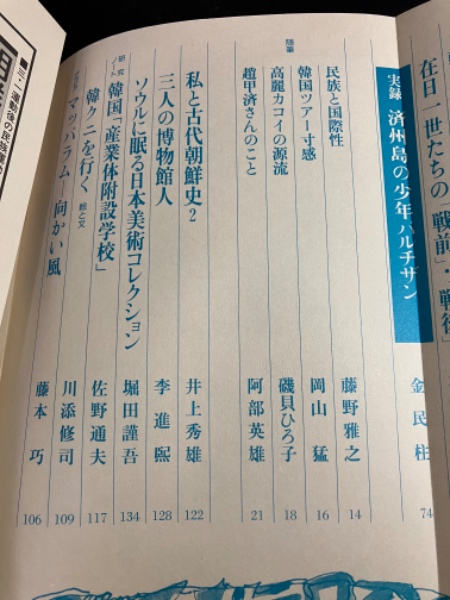 在日一世たちの「戦前」・「戦後
実録 済州島の少年パルチザン 金民柱 74
随筆
民族と国際性 藤野雅之 14
韓国ツアー寸感 岡山猛 16
高麗カコイの源流 磯貝ひろ子 18
趙甲済さんのこと 阿部英雄 21
私と古代朝鮮史2 井上秀雄 122
三人の博物館人 李進熙 128
ソウルに眠る日本美術コレクション 堀田謹吾 134
研究ノート 韓国「産業体附設学校」 佐野通夫 117
韓クニを行く 絵と文 川添修司 109
マッパラム―向かい風 藤本巧 106
■三・一運動後の民族運